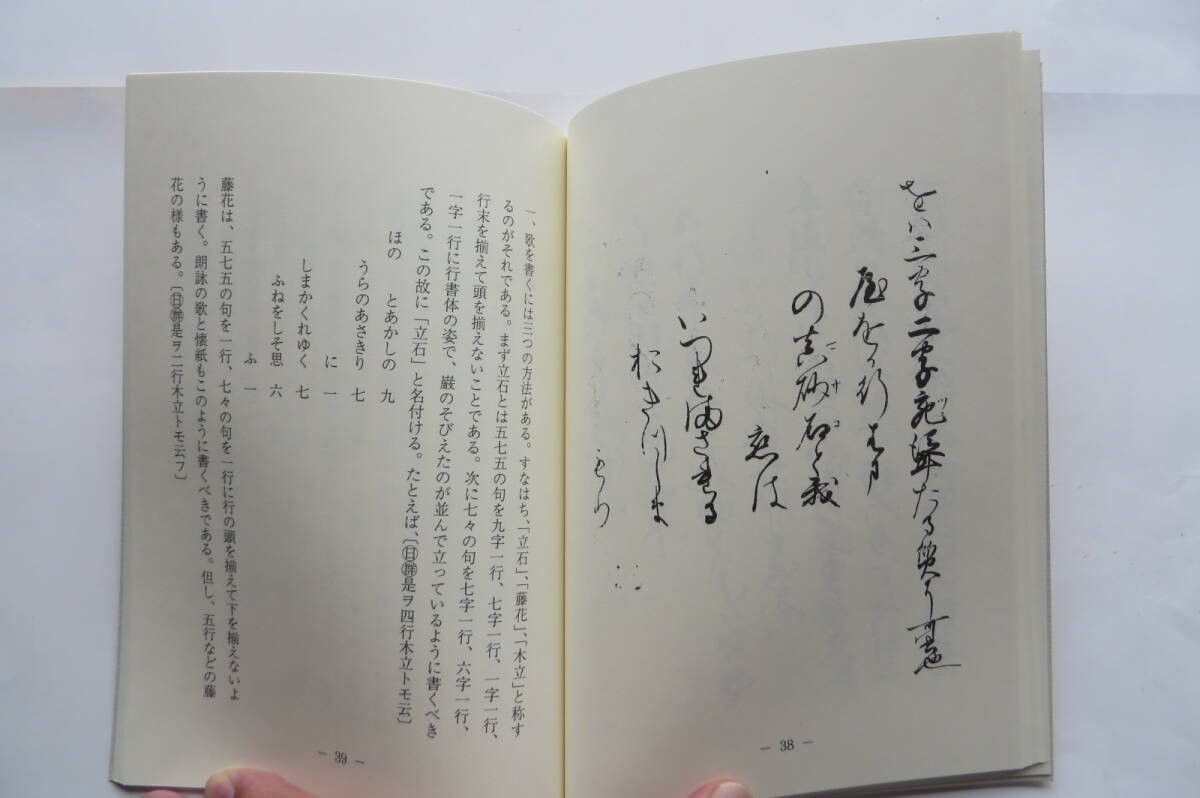 の真砂と我
恋は
いつれまされる
おきつしま
もり
— 38 —
一、歌を書くには三つの方法がある。すなはち、「立石」、「藤花」、「木立」と称す
るのがそれである。まず立石とは五七五の句を九字一行、七字一行、一字一行、
行末を揃えて頭を揃えないことである。次に七々の句を七字一行、六字一行、
一字一行に行書体の姿で、巌のそびえたのが並んで立っているように書くべき
である。この故に「立石」と名付ける。たとえば、〔㊐群是ヲ四行木立トモ云フ〕
ほの　とあかしの　九
うらのあさきり　七
に　一
しまかくれゆく　七
ふねをしそ思　六
ふ　一
藤花は、五七五の句を一行、七々の句を一行に行の頭を揃えて下を揃えないよ
うに書く。朗詠の歌と懐紙もこのように書くべきである。但し、五行などの藤
花の様もある。〔㊐群是ヲ二行木立トモ云フ〕
— 39 —